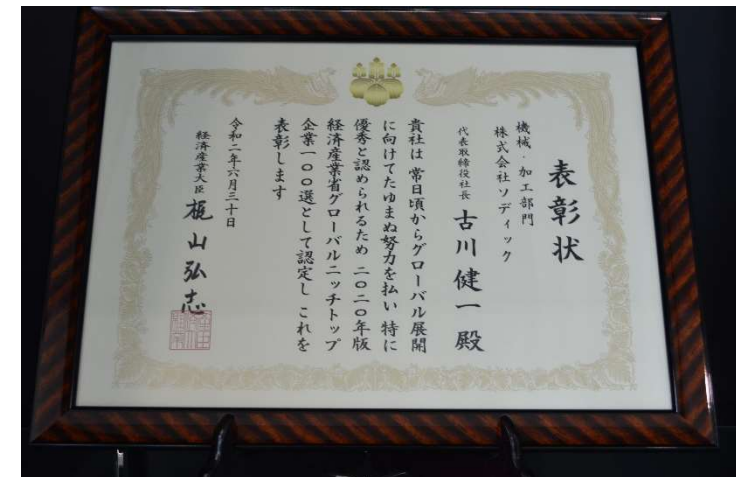 表彰状
機械・加工部門
株式会社ソディック
代表取締役社長 古川健一 殿
貴社は 常日頃からグローバル展開
に向けてたゆまぬ努力を払い 特に
優秀と認められるため 二〇二〇年版
経済産業省グローバルニッチトップ
企業一〇〇選として認定し これを
表彰します
令和二年六月三十日
経済産業大臣 梶山弘志